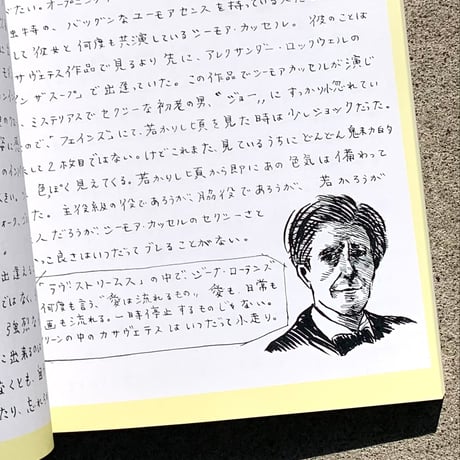 たい。オープニング
出牛寺の、バツグンなユーモアセンスを持っている人
して彼女と何度も共演しているシーモア・カッセル。彼のことは
サヴェテス作品で見るより先に、アレクサンダー・ロックウェルの
イン ザ スープ」で出逢っていた。この作品でシーモアカッセルが演じ
ミステリアスでセクシーな初老の男、“ジョー”にすっかり惚れてい
ので、「フェイシズ」にて、若かりし頃を見た時は少しショックだった。
して2枚目ではない。けどこれまた、見ているうちにどんどん魅力的
色ぽく見えてくる。若かりし頃から即にあの色気は備わって
た。主役級の役であろうが、脇役であろうが、若かろうが
人だろうが、シーモア・カッセルのセクシーさと
っこ良さはいつだってブレることがない。
「ラヴストリームス」の中で、ジーナ・ローランズ
何度も言う、“愛は流れるもの”。愛も、日常も
画も流れる。一時停止するものじゃない。
リーンの中のカサヴェテスはいつだって小走り。
出逢える
ではなく、
強烈な
に出来るのは
なくとも、
たり、忘れ